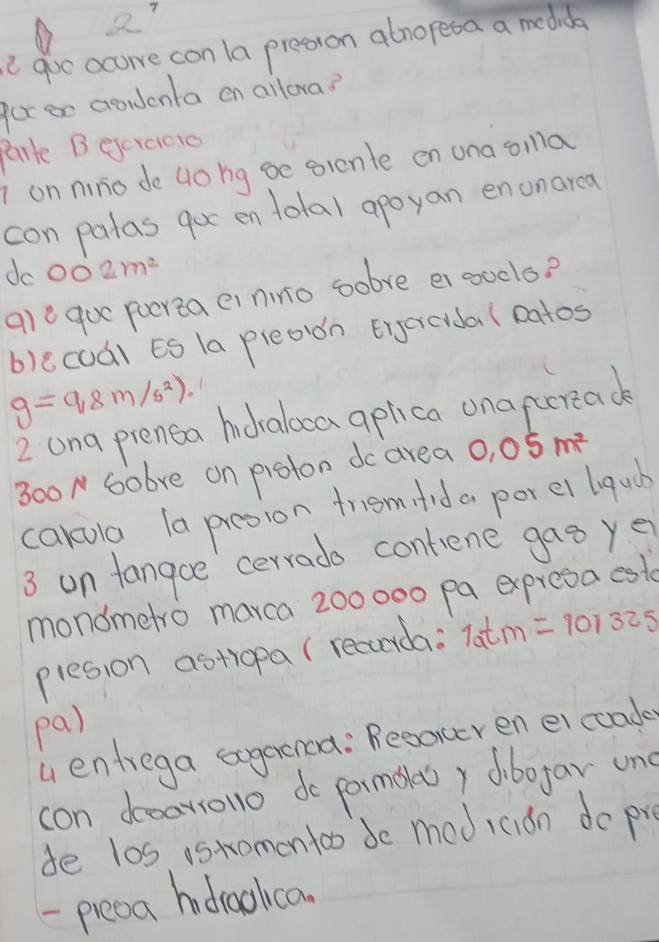 2
¿ qoc ocurre con la presion atnofesa a medida
qoc se acsidenta en altora?
Parte B ejercicio
1 on niño de 40 kg se siente en una silla
con patas qoc en total apoyan en un area
dc 002m²
a) ¿ qoc foorza el niño sobre el soelo?
b) ¿ coál Es la presión Erjercida ( Datos
g = 9,8 m/s²).
2 una prensa hidraloca aplica una fuerza de
300 N sobre on piston dc area 0,05 m²
calcula la presion trismitida por el liquido
3 on tanqoe cerrado contiene gas y el
monómetro marca 200 000 pa expresa esta
presion astropa ( recuerda: 1atm = 101325
pa)
4 entrega sogerencia: Resolver en el coader
con desarrollo dc formolas y dibojar uno
de los istromentos de medición dc pre
- presa hidraolica.